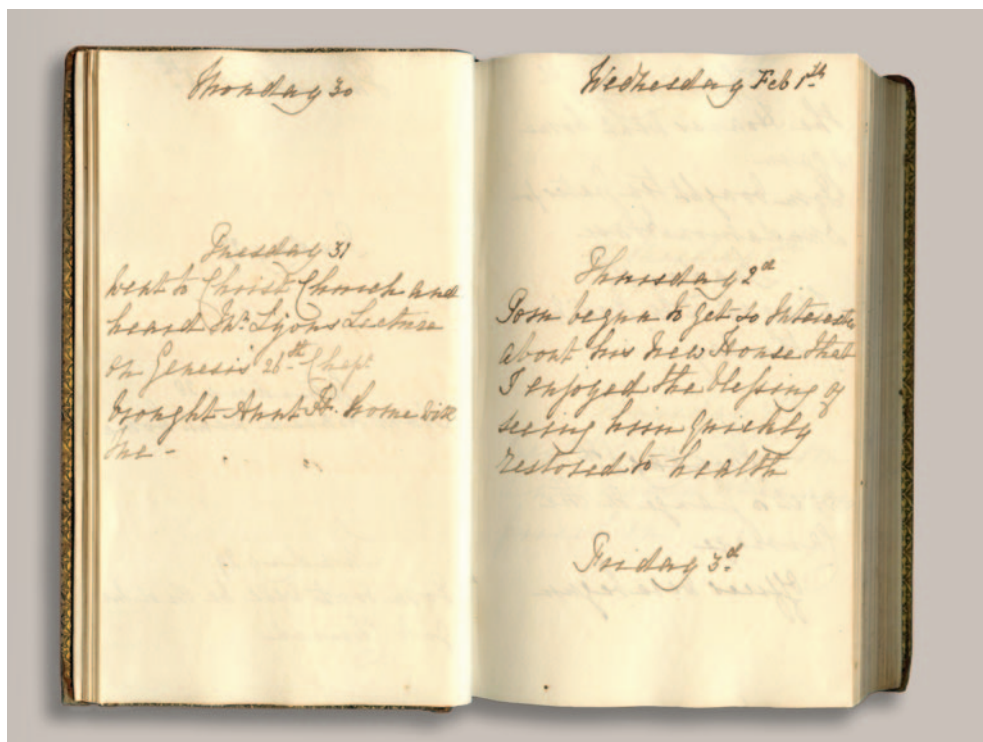 Monday 30
Tuesday 31
Went to Christ Church and
heard Mr. Lyons Lecture
on Genesis 26th Chapt
brought Aunt H. home with
me -
Wednesday Feb 1th
Thursday 2d
Tom begun to get so Interested
about his New House that
I enjoyed the blessing of
seeing him quickly
restored to health
Friday 3d